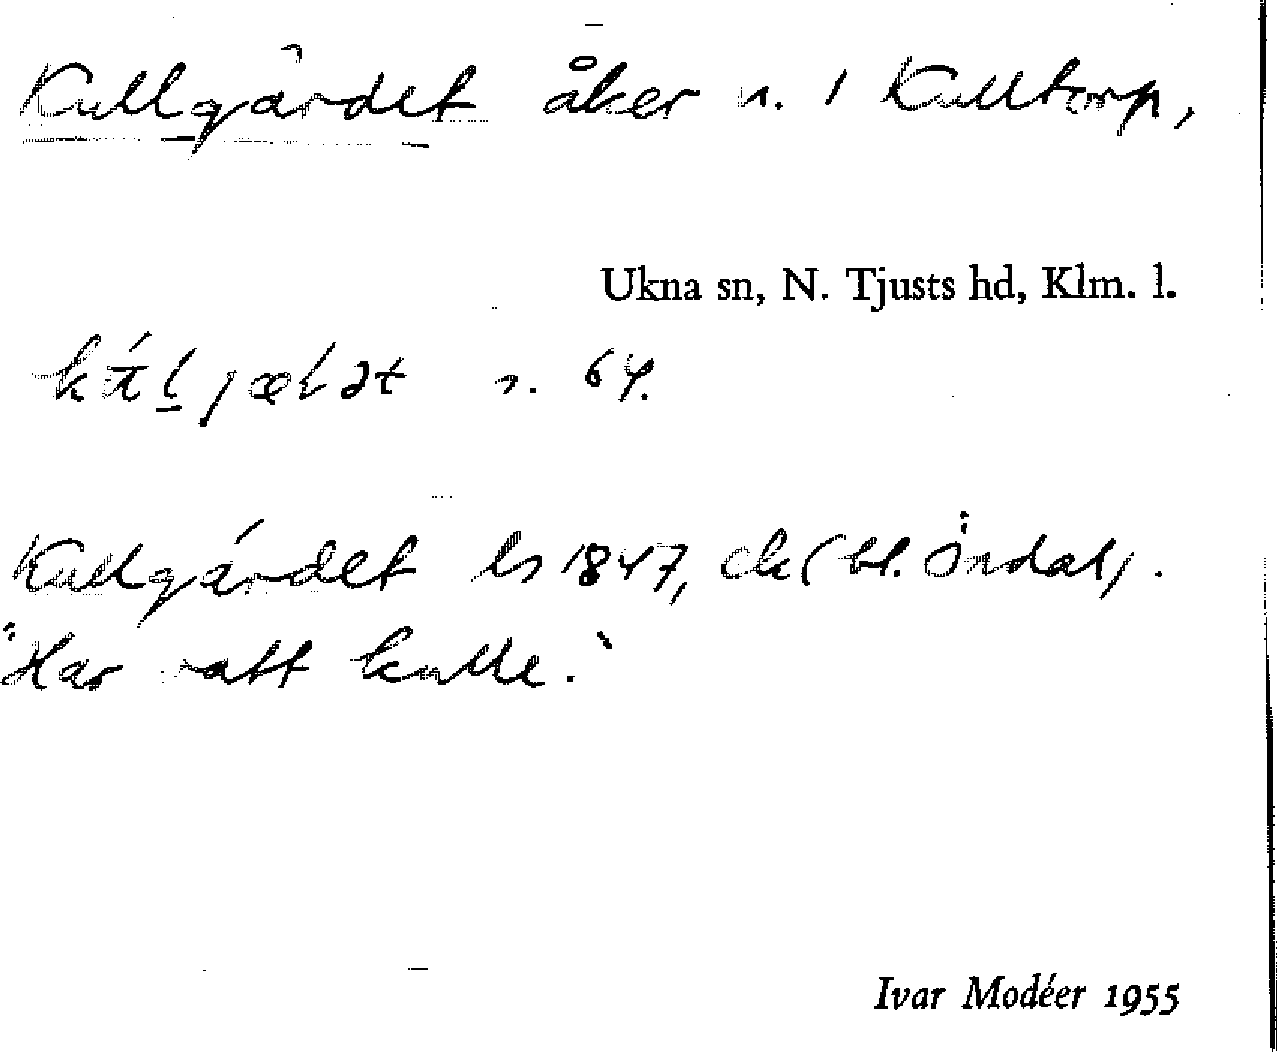 Kullgärdet åker n. i Kulltorp,
Ukna sn, N. Tjusts hd, Klm. l.
n. 64.
Kullgärdet ls 1847, ck (bl. Öndal).
"Har vatt kulle."
Ivar Modéer 1955